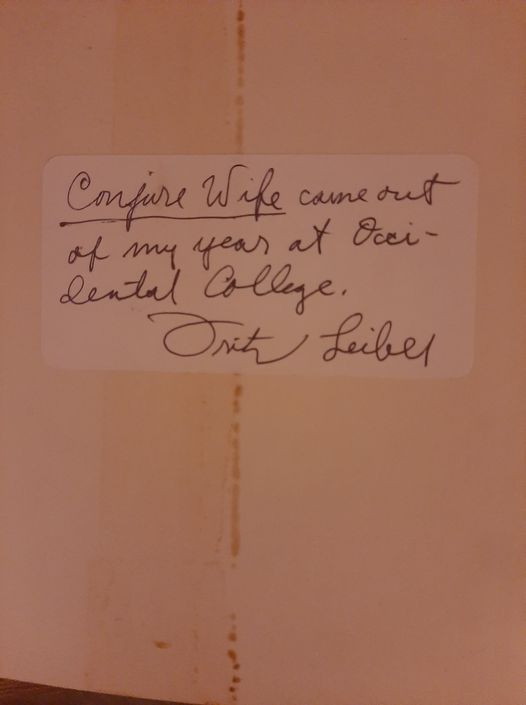 Conjure Wife came out
of my year at Occi-
dental College.
Fritz Leiber